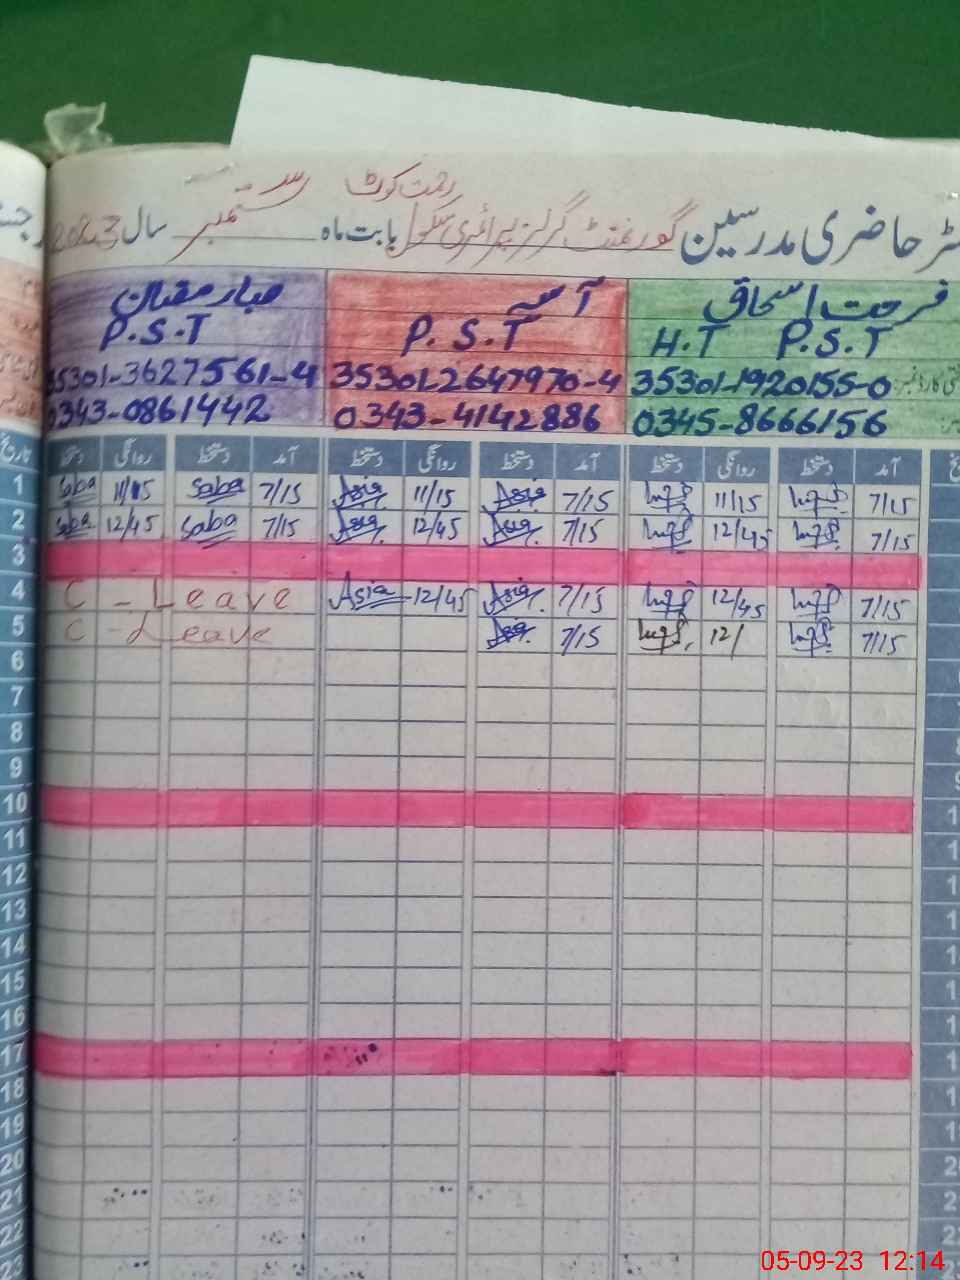 رحمت کوٹ
ٹر حاضری مدرسین گورنمنٹ گرلز پرائمری سکول بابت ماہ ستمبر سال 2023
فرحت اسحاق
H.T P.S.T
35301-1920155-0
0345-8666156
آسیہ
P.S.T
35301-2647970-4
0343-4142886
P.S.T
35301-3627561-4
0343-0861442
تاریخ دستخط روانگی دستخط آمد دستخط روانگی دستخط آمد دستخط روانگی دستخط آمد
1 Saba 11/15 Saba 7/15 Asia 11/15 Asia 7/15 11/15 7/15
2 Saba 12/45 Saba 7/15 Asia 12/45 Asia 7/15 12/45 7/15
3
4 C - Leave Asia 12/45 Asia 7/15 12/45 7/15
5 C - Leave Asia 7/15 12/ 7/15
6
7
8
9
10
11
12
13
14
15
16
17
18
19
20
21
22
23
05-09-23 12:14